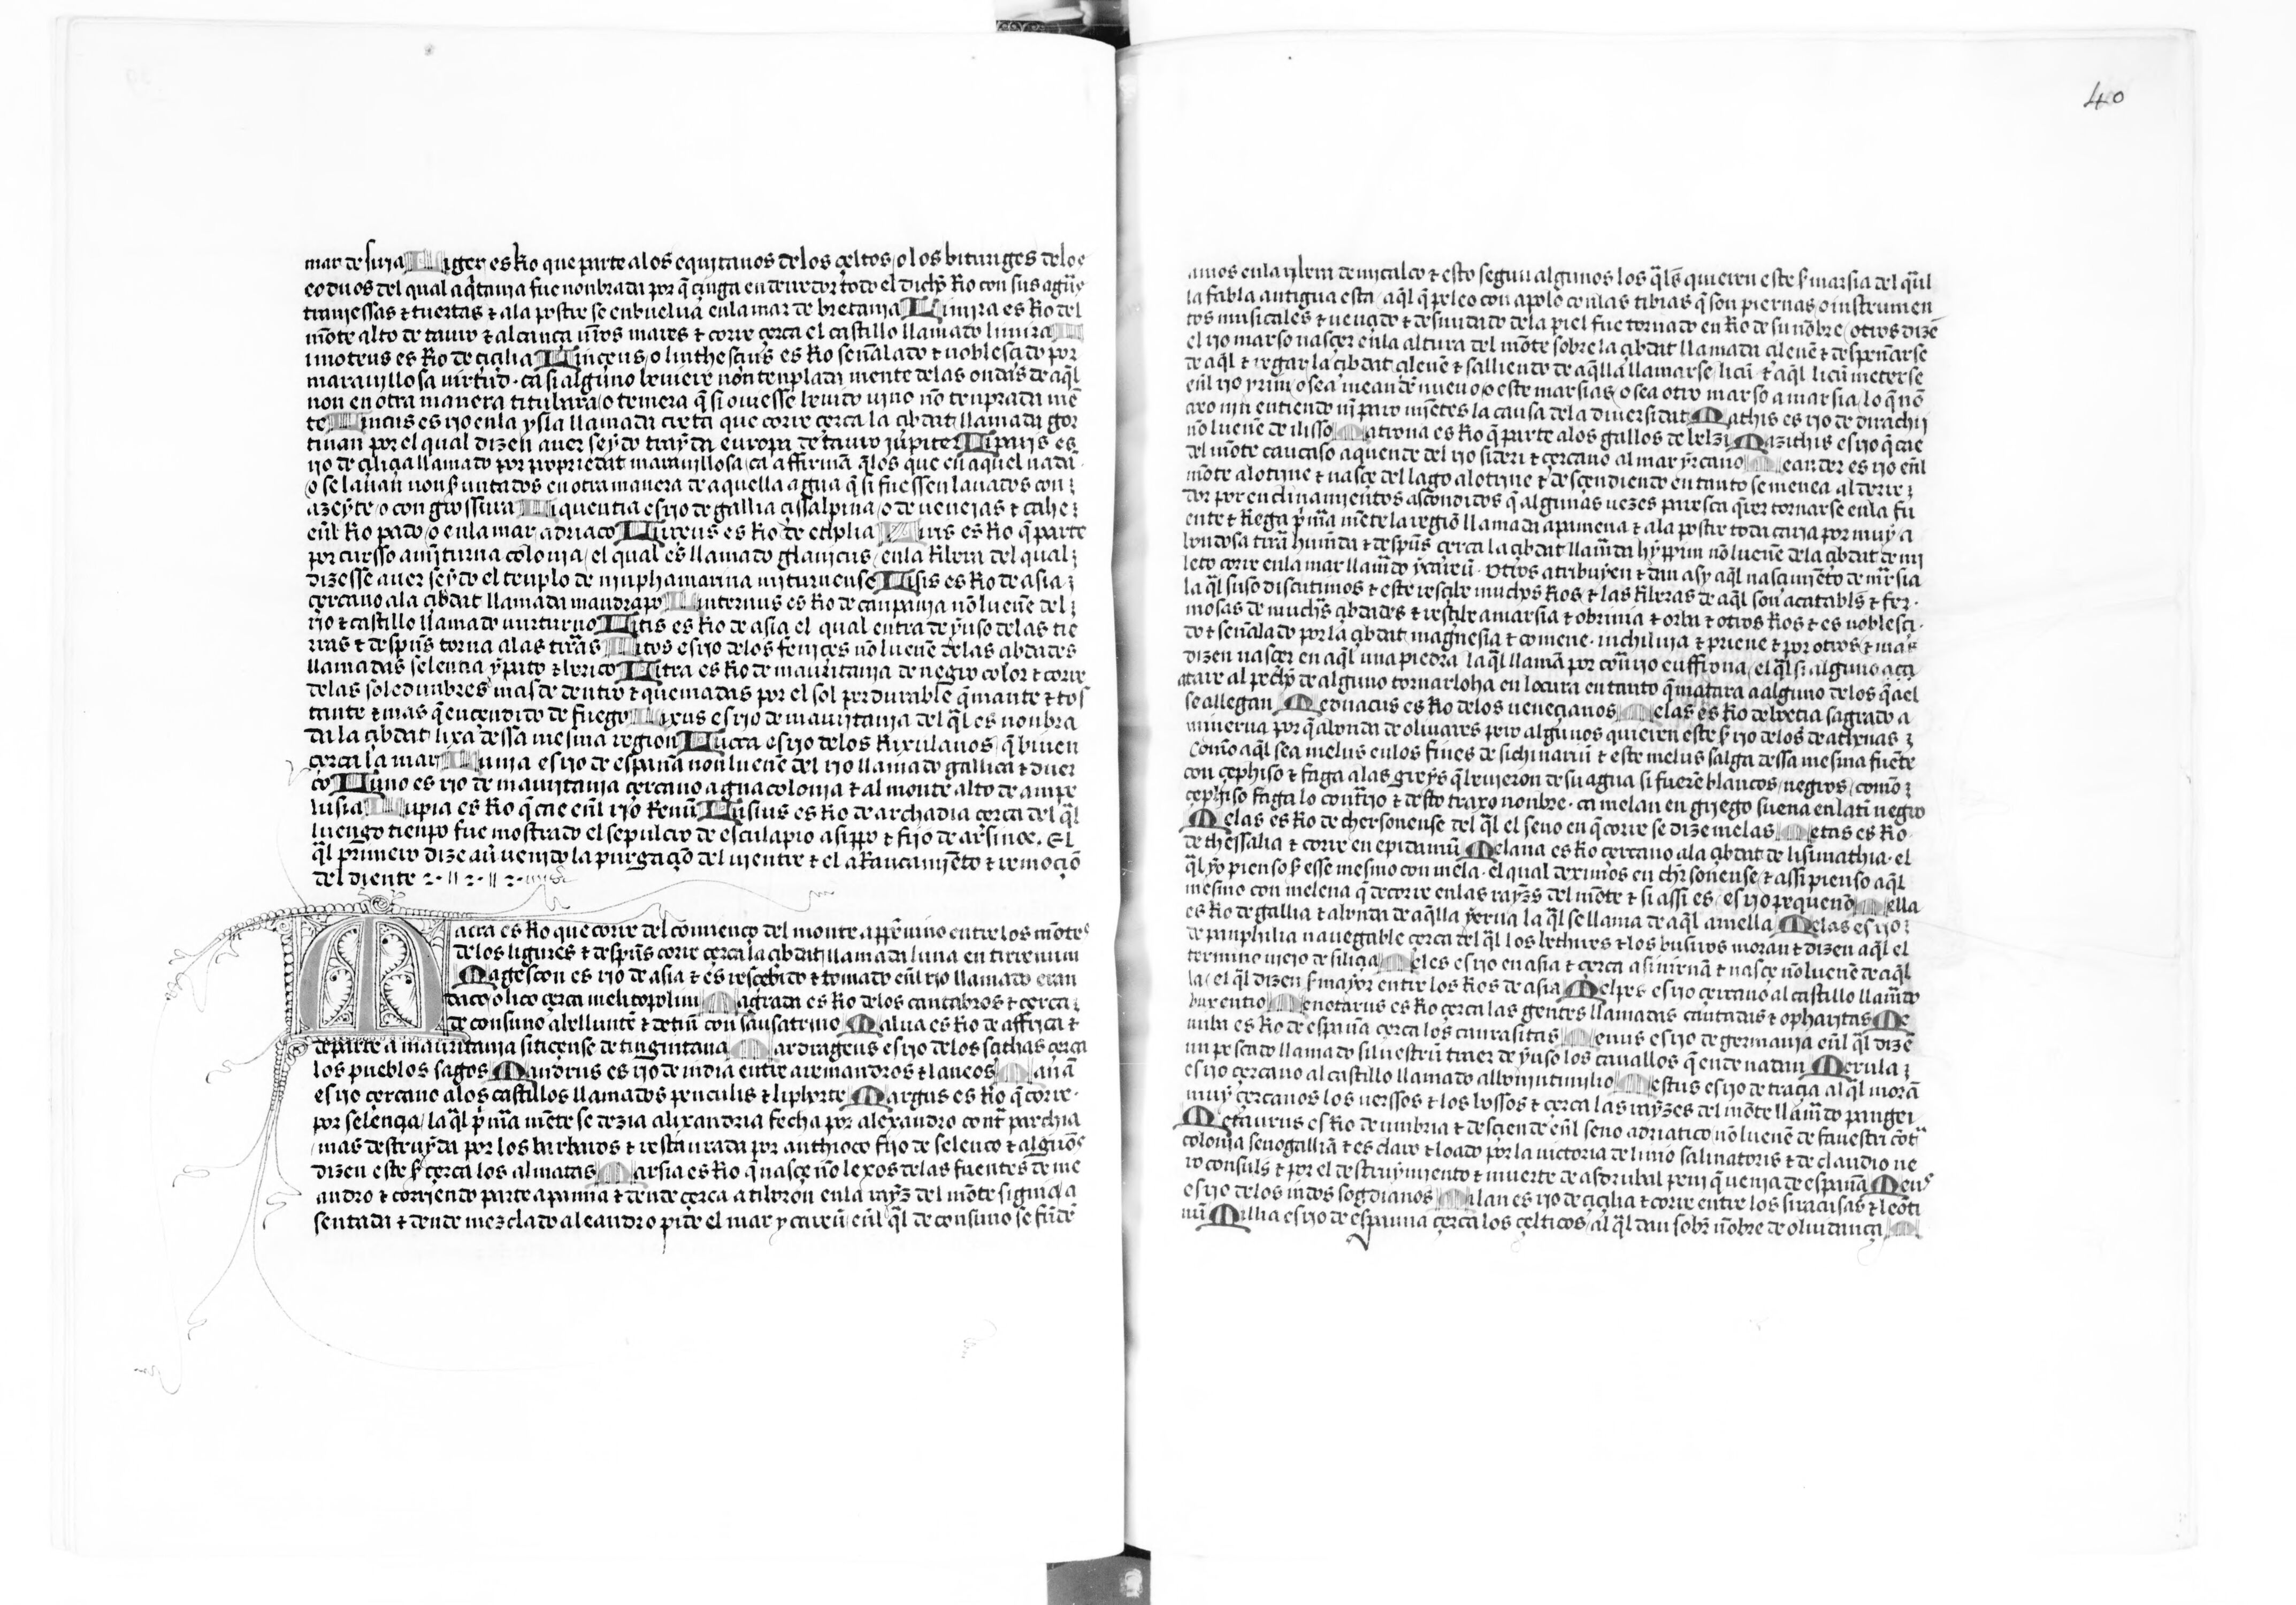 mar de siria Liger es Rio que parte a los equitanos de los çeltos / o los bituriges de los
eoduos del qual aq̃tania fue nonbrada por q̃ çinga en derredor todo el dicho Rio con sus aguas
trauiessas & tuertas & ala postre se enbuelua enla mar de bretania Limira es Rio del
mõte alto de tauro & alcança nr̃os mares & corre çerca el castillo llamado limira L
imoteus es Rio de çiçilia Linçeus / o linthesçius es Rio señalado & noblesçido por
marauillosa virtud · ca si alguno beuiere non tenplada mente delas ondas de aq̃l
non en otra manera titubara / o temera q̃ si ouiesse beuido vino nõ tenprada mẽ
te Lincus es rio enla ysla llamada creta que corre çerca la çibdat llamada gor
tinan por el qual dizen auer seydo trayda europa de tauro jupiter Liparis es
rio de çiliçia llamado por propriedat marauillosa / ca affirmã q̃ los que en aquel nadã
o se lauan non sõ untados en otra manera de aquella agua q̃ si fuessen lauados con
azeyte / o con grossura Liquentia es rio de gallia çissalpina / o de veneçias & cahe
enl Rio pado / o enla mar adriaco Lireus es Rio de Liris es Rio q̃ parte
por curso a miturna colonia / el qual es llamado glanicus / enla Ribera del qual
dizesse auer seydo el tenplo de ninpha marina miturnense Lisis es Rio de asia
çercano ala çibdat llamada mandrapo Linternus es Rio de canpania nõ luene del
rio & castillo llamado uurturno Litis es Rio de asia el qual entra de yuso delas tie
rras & despues torna alas tierras Litos es rio delos feniçes nõ luene delas çibdades
llamadas selencia ypato & berito Litra es Rio de mauritania de negro color & corre
delas soledunbres mas de dentro & quemadas por el sol perdurable q̃mante & tos
tante & mas q̃ ençendido de fuego Lixus es rio de mauritania del q̃l es nonbra
da la çibdat lixa dessa mesma region Lucca es rio delos Rixulanos q̃ biuen
çerca la mar Lunia es rio de españa non luene del rio llamado gallica & duer
co Luno es rio de mauritania çercano a gna colonia & al monte alto de ampe
lusia Lupia es Rio q̃ cae enl rio Renu Lusius es Rio de archadia çerca del q̃l
luengo tienpo fue mostrado el sepulcro de esculapio asippo & fijo de arsinoe. El
q̃l primero dize auer venido la purgaçiõ del vientre & el aRancamiẽto & remoçiõ
del diente
Macra es Rio que corre del comienço del monte appenino entre los mõtes
delos ligures & despues corre çerca la çibdat llamada luna en tirrenum
Magescon es rio de asia & es resçebido & tomado enl rio llamado eran
daco / o lico çerca melitopolim Magrada es Rio delos cantabros & çerca
de consuno con sausatrino Malua es Rio de affrica &
departe a mauritania sitiçense de tingintana Mardrageus es rio delos sachas çerca
los pueblos sagos Mandrus es rio de india entre aremandros & laneos Manã
es rio çercano alos castillos llamados penculis & liporte Margus es Rio q̃ corre
por selençia / la q̃l prima mẽte se dezia alixandria fecha por alexandro cont̃ parchia
mas destruyda por los barbaros & restaurada por anthioco fijo de seleuco & algunos
dizen este ser çerca los almatas Marsia es Rio q̃ nasçe nõ lexos delas fuentes de me
andro & corriendo parte a pamia & dende çerca a tibron enla rayz del mõte signia / a
sentada & dende mezclado a leandro pide el mar y careũ / enl q̃l de consuno se fũde
40
amos enla ribera de micalco & esto segun algunos los q̃les quieren este ser marsia del q̃l
la fabla antigua esta / aq̃l q̃ peleo con apolo conlas tibias q̃ son piernas / o instrumen
tos musicales & vençido & desnudado dela piel fue tornado en Rio de su nõbre / otros dizẽ
el rio marso nasçer enla altura del mõte sobre la çibdat llamada çilenẽ & despeñarse
de aq̃l & regar la çibdat çilenẽ & salliendo de aq̃lla llamarse / licũ & aq̃l licũ meterse
enl rio yrim / o sea meandr nueuo / o este marsias / o sea otro marso a marsia / lo q̃ nõ
aro nin entiendo nĩ paro miẽtes la causa dela diuersidat Mathis es rio de dirachij
nõ luene de ilisso Matrona es Rio q̃ parte alos gallos de belzi Mazichis es rio q̃ cae
del mõte caucaso aquende del rio sideri & çercano al mar yrcano Meander es rio enl
mõte alotijne & nasçe del lago alotijne & desçendiendo en tanto se menea al derre
dor por enclinamientos ascondidos q̃ algunas vezes paresca q̃rer tornarse enla fu
ente & Riega prima mẽte la regiõ llamada apamena & ala postre toda caria por muy a
bondosa tierra humida & despues çerca la çibdat llamada hyppim nõ luene dela çibdat de mi
leto corre enla mar llamado ycareũ · Otros atribuyen & dan asy aq̃l nasçimiẽto de marsia
la q̃l suso discutimos & este resçibe muchos Rios & las Riberas de aq̃l son acatables & fer
mosas de muchas çibdades & resçibe a marsia & obrinia & orba & otros Rios & es noblesçi
do & señalado por la çibdat magnesia & comene · michiluia & priene & por otros & mas
dizen nasçer en aq̃l una piedra la q̃l llamã por cont̃rio euffrona / el q̃l si alguno aca
atare al pecho de alguno tornarloha en locura en tanto q̃ matara a alguno delos q̃ a el
se allegan Meduacus es Rio delos veneçianos Melas es Rio de boecia sagrado a
minerua por q̃ abonda de oliuares pero algunos quieren este ser rio delos de athenas
Como aq̃l sea melus enlos fines de sichinariũ & este melus salga dessa mesma fuẽte
con çephiso & faga alas greys q̃ beuieron de su agua si fuerẽ blancos / negros / como
çephiso faga lo contrario & desto traxo nonbre · ca melan en griego suena en latĩ negro
Melas es Rio de chersonense del q̃l el seno en q̃ corre se dize melas Metas es Rio
de thessalia & corre en epidamũ Melana es Rio çercano ala çibdat de lisimathia · el
q̃l yo pienso ser esse mesmo con mela · el qual deximos en chersonense / & assi pienso aq̃l
mesmo con melena q̃ decorre enlas rayzes del mõte & si assi es / es rio pequeño Mella
es Rio de gallia & abonda de aq̃lla yerua la q̃l se llama de aq̃l amella Melas es rio
de panphilia nauegable çerca del q̃l los lethures & los busiros moran & dizen aq̃l el
termino viejo de siliçia Meles es rio en asia & çerca a smirnã & nasçe nõ luene de aq̃l
la / el q̃l dizen ser mayor entre los Rios de asia Melpes es rio çercano al castillo llamado
burentio Menotarus es Rio çerca las gentes llamadas cantadas & opharitas Me
nuba es Rio de españa çerca los caurasitas Menus es rio de germania enl q̃l dizẽ
un pescado llamado siluestrũ traer de yuso los cauallos q̃ ende nadan Merula
es rio çercano al castillo llamado albonintimilio Mestus es rio de traçia al q̃l morã
muy çercanos los uerssos & los bossos & çerca las rayzes del mõte llamado pangei
Metaurus es Rio de umbria & desçiende enl seno adriatico / nõ luene de fanestri cõtra
colonia senogalliã & es claro & loado por la victoria de liuio salinatoris & de claudio ne
ro consules & por el destruymiento & muerte de asdrubal peni q̃ venia de españa Meus
es rio delos indos sogdianos Milan es rio de çiçilia & corre entre los siracusas & leõti
nũ Millia es rio de espanna çerca los çelticos / al q̃l dan sobre nõbre de oluidança M